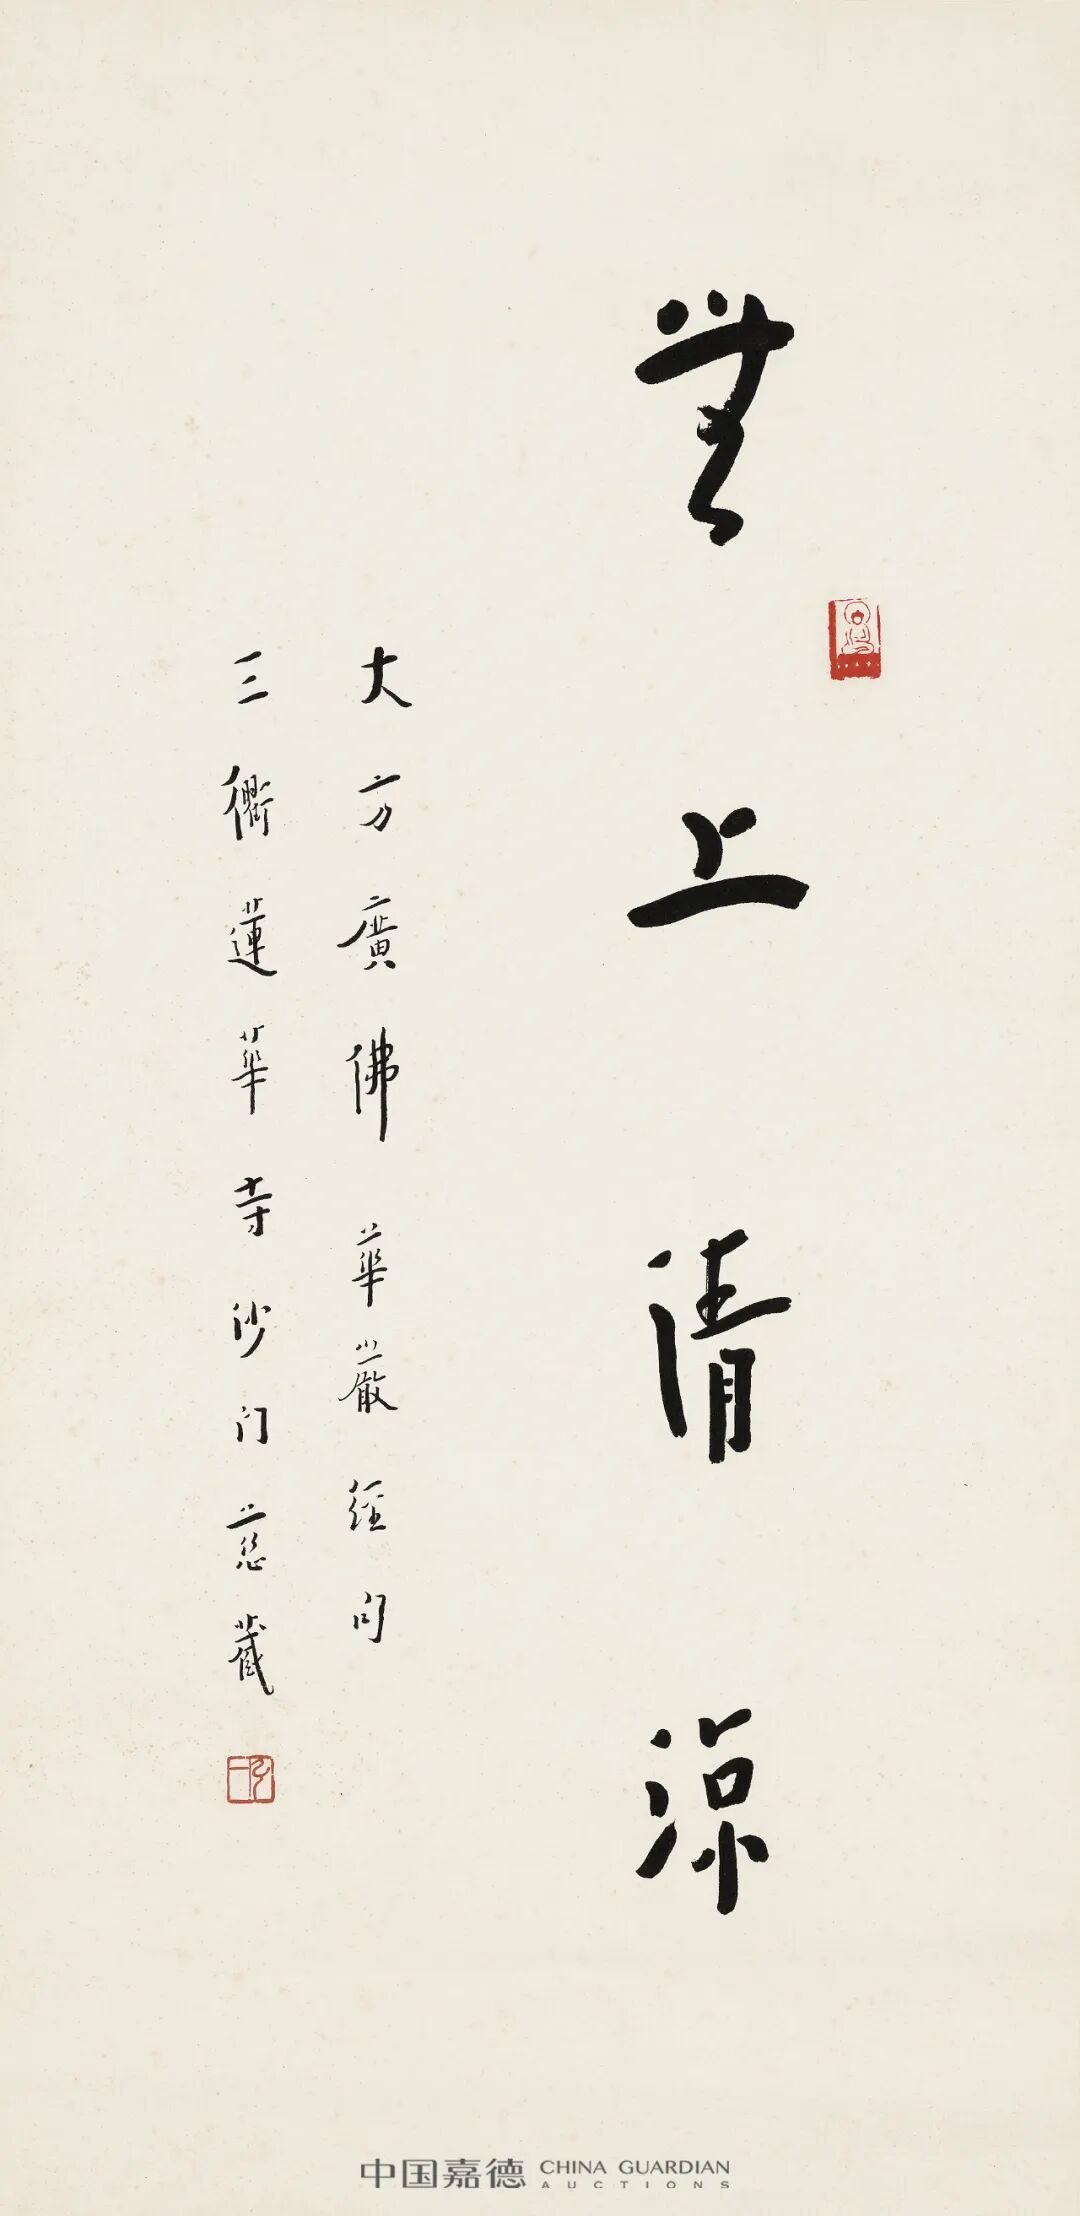 無上清涼
大方廣佛華嚴經句
三衢蓮華寺沙门慈藏
中国嘉德 CHINA GUARDIAN
AUCTIONS